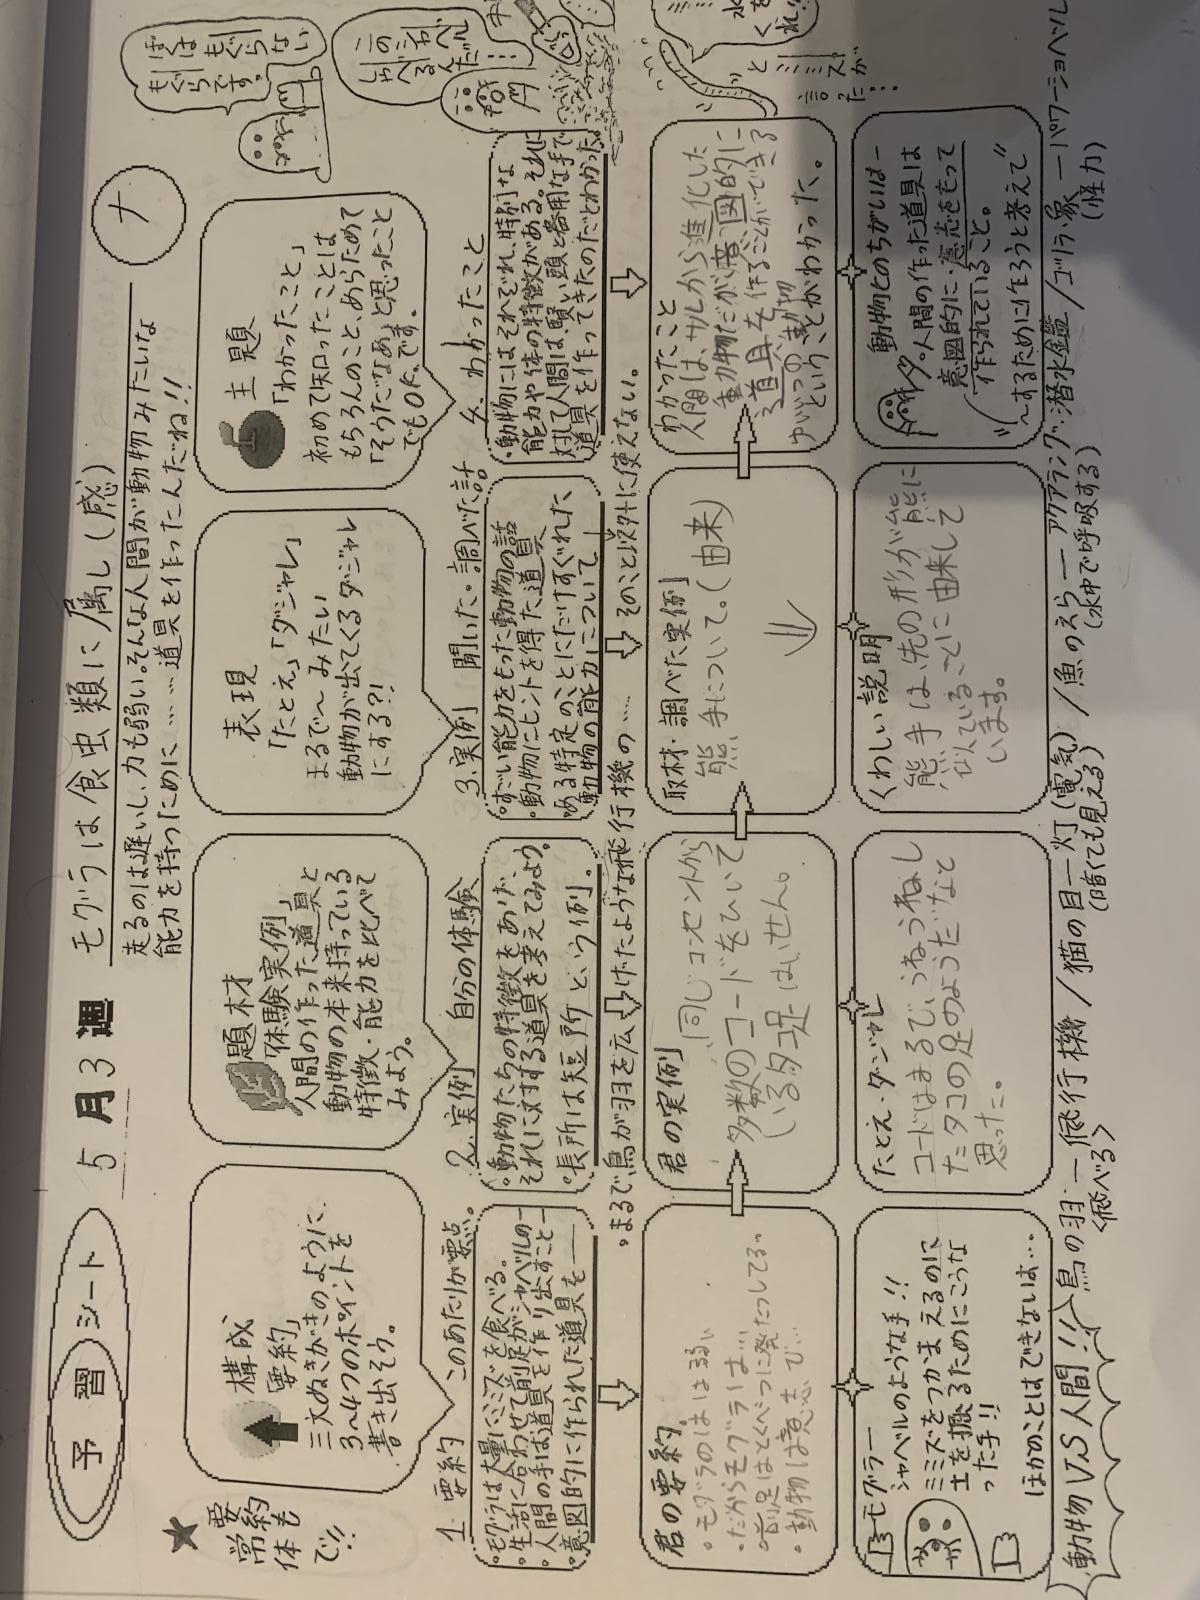 予習シート
5月3週
モグラは食虫類に属し(感)
ナ
走るのは遅いし、力も弱い。そんな人間が動物みたいな
能力を持つために………道具を作ったんだね!!
ぼくは
もぐら
もぐらです。
★
要約も
常体
で!!
構成
「要約」
三文ぬきがきのように、
3~4つのポイントを
書き出そう。
題材
「体験実例」
人間の作った道具と
動物の本来持っている
特徴・能力を比べて
みよう。
表現
「たとえ」「ダジャレ」
まるで~みたい
動物が出てくるダジャレ
にする?!
主題
「わかったこと」
初めて知ったことは
もちろんのこと、あらためて
「そうだなあ」と思ったこと
でもOK.です。
1.要約 このあたりが要点。
・モグラは大量にミミズを食べる。
・生活に合わせて前足がシャベルの―
・人間の手は道具を作り出すこと―
・意図的に作られた道具を―
2.実例 自分の体験
・動物たちの特徴をあげた、
それに対する道具を考えてみよう。
・長所は短所 という例。
3.実例 聞いた・調べた話
・すごい能力をもった動物の話
・動物にヒントを得た道具
・ある特定のことにだけすぐれた
動物の能力について―
4.わかったこと
・動物にはそれぞれ、特別な
能力や体の特徴がある。それに
対して人間は、賢い頭と器用な手で
道具を作ってきたのだとわかった。
・まるで鳥が羽を広げたような飛行機の…… そのこと以外に使えない。
君の要約
・だからモグラは…
前足はとくべつに発たつしてる。
君の実例
同じコンセントから
多数のコードをひいて
いるタコ足はいせん。
取材・調べた実例
熊手について。(由来)
わかったこと
人間は、サルから進化した
動物だが、意図的に
道具を作ることができる
ゆいいつの動物
ということがわかった。
モグラー
シャベルのような手!!
ミミズをつかまえるのに
土を掘るためにこうな
った手!!
ほかのことはできないは…
たとえ・ダジャレ
コードはまるで、うねうねし
たタコの足のようだなと
思った。
くわしい説明
熊手は、先の形が熊に
似ていることに由来して
います。
動物とのちがいは―
人間の作った道具は
意図的に・意志をもって
作られていること。
"~するために作ろうと考えて"
動物VS人間!! 鳥の羽―飛行機/猫の目―灯(電気)/魚のえら―アクアラング・潜水鑑/ゴリラ・象―パワーショベル
<飛べる> (暗くても見える) (水中で呼吸する) (怪力)